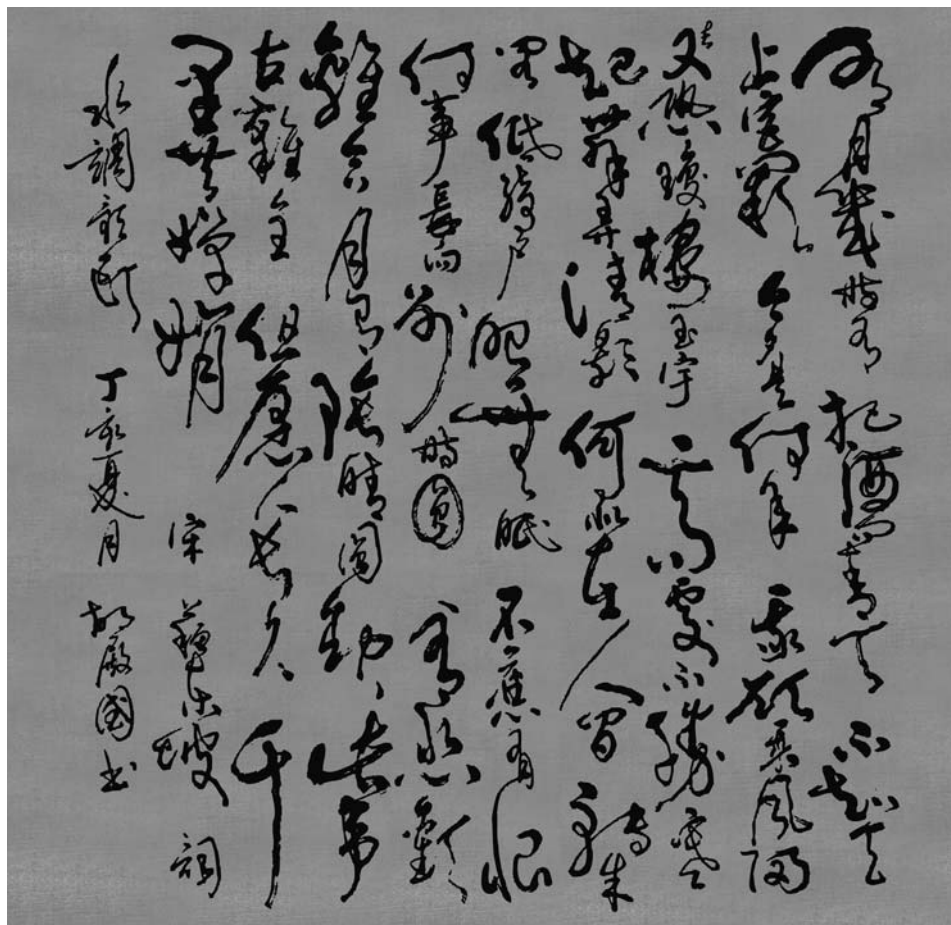 明月幾時有 把酒問青天 不知天
上宮闕 今夕是何年 我欲乘風歸
去 又恐瓊樓玉宇 高處不勝寒
起舞弄清影 何似在人間 轉朱
閣 低綺戶 照無眠 不應有恨
何事長向別時圓 人有悲歡
離合 月有陰晴圓缺 此事
古難全 但願人長久 千
里共嬋娟 宋 蘇東坡 詞
水調歌頭 丁亥夏月 胡殿國書